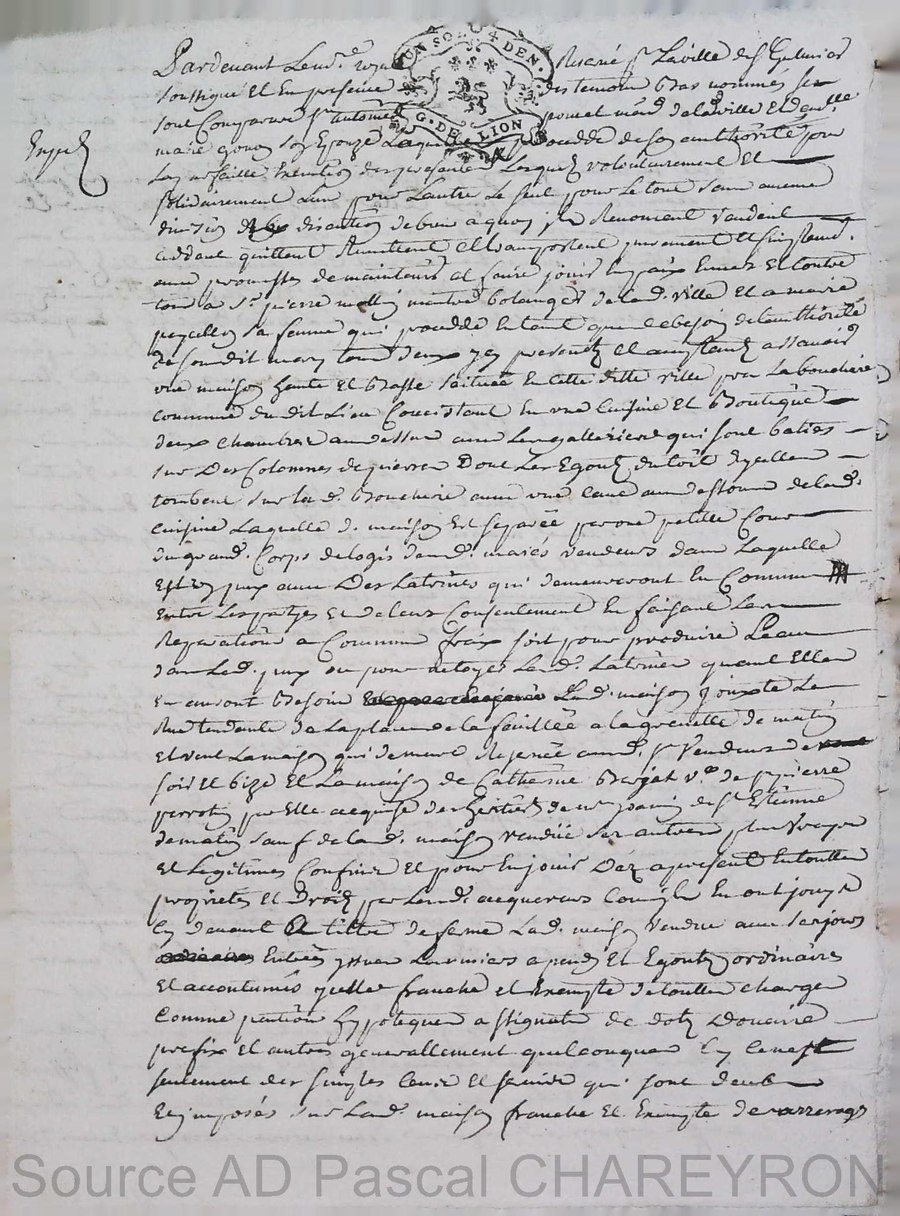 Pardevant Led. no.re royal Reservé p.r La ville de S.t Galmier
soussigné Et En presence des temoins Bas nommés
UN SOL 4 DEN.
G. DE LION
sont Comparus S.r antoine poncet mar.d de lad. ville Et d.elle
marie son Epouze Laquelle procedde de son authorité pour
La validité Execution des presentes Lesquels volontairement Et
solidairement Lun pour Lautre Le seul pour Le tout sans aucune
division discution de biens a quoy ils Renoncent vendent
ceddent quittent Remettent Et transportent purement Et simplem.t
avec promesses de maintenir Et faire jouir En paix Envers Et contre
tous a S.r pierre maitre bolanger de lad. ville Et a marie
peycellon sa femme qui procedde En tant que de besoin de lauthorité
de son dit mary tous deux icy presents Et acceptants assavoir
une maison haute Et Basse scituée En cette ditte ville pres La boucherie
commune du dit Lieu Consistant En une Cuisine Et Boutique
deux chambres au dessus avec Les galleries qui sont baties
sur Des Colomnes de pierres Dont Les Egouts du toit dycelles
tombent sur lad. Boucherie avec une cave au dessous de lad.
cuisine Laquelle d. maison Est separée par une petite Cour
du grand Corps de logis desd. mariés vendeurs dans Laquelle
Est un puy avec Des Latrines qui demeureront En Commun
Entre Les partyes Et de leur Consentement En faisant Les
Reparations a Commun fraix soit pour produire Leau
dans Led. puy ou pour netoyer Lesd. Latrines quand Elles
En auront Besoin Lad. maison jouxte La
Rue tendante de La place de la feuillée a la grenette de matin
Et vent La maison qui demeure Reservée aud. S.r Vendeurs de
soir Et bize Et La maison de Catherine v.e de pierre
perrotin par Elle acquise des heritiers de de S.t Etienne
de matin sauf de lad. maison vendüe ses autres plus vrays
Et Legitimes Confins Et pour En jouir Dez apresent En toutte
proprieté Et Droit par Lesd. acquereurs Comme ils En ont jouy
Cy devant a tittre de ferme Lad. maison vendue avec ses jours
Entrées yssues Larmiers apends Et Egouts ordinaires
Et accoutumés ycelle franche Et Exempte de touttes charges
Comme pention hypoteques assignats de dots Douaire
prefix Et autres generallement quelconques Cy ce nest
seulement des simples Cens Et servis qui sont deubs
Et imposés sur Lad. maison franche Et Exempte de arrerages
Source AD Pascal CHAREYRON